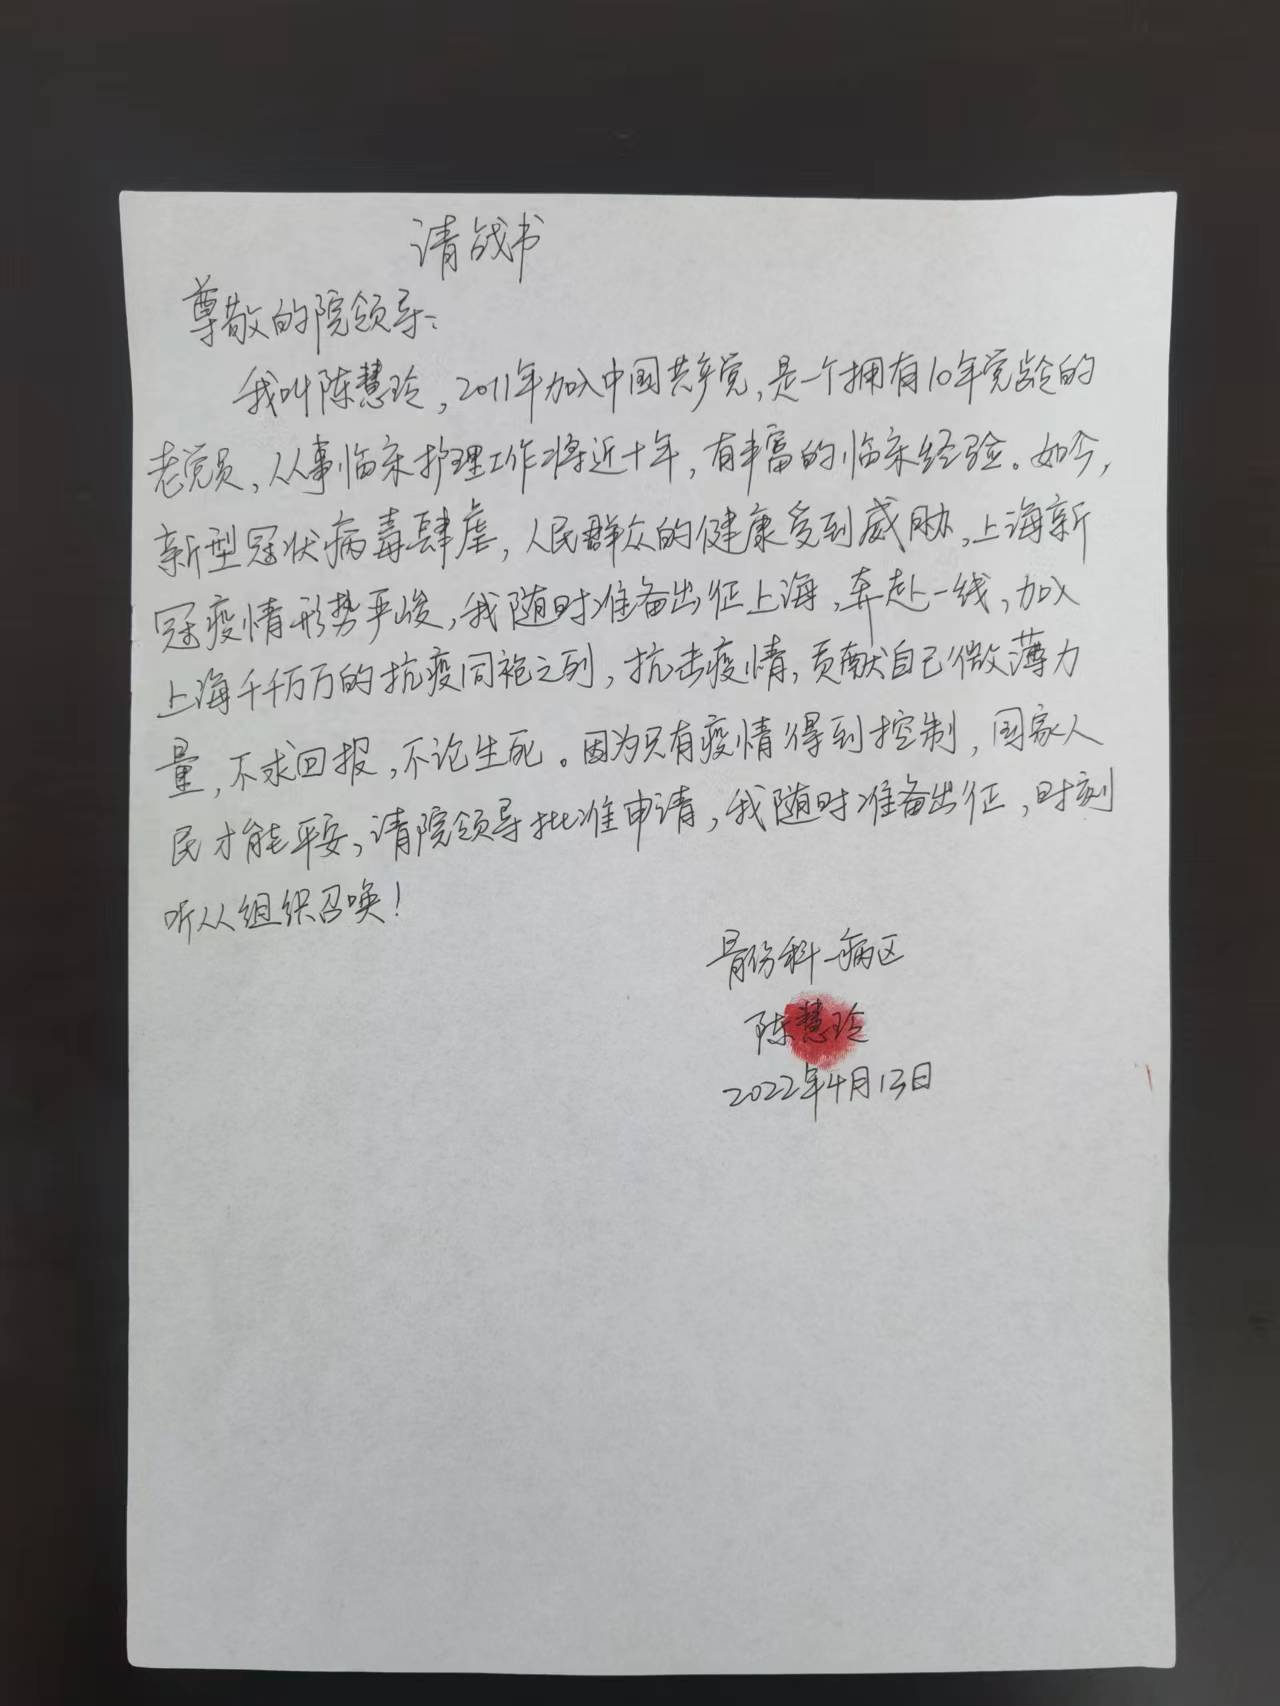 请战书
尊敬的院领导：
我叫陈慧玲，2011年加入中国共产党，是一个拥有10年党龄的
老党员，从事临床护理工作将近十年，有丰富的临床经验。如今，
新型冠状病毒肆虐，人民群众的健康受到威胁，上海新
冠疫情形势严峻，我随时准备出征上海，奔赴一线，加入
上海千千万万的抗疫同袍之列，抗击疫情，贡献自己微薄力
量，不求回报，不论生死。因为只有疫情得到控制，国家人
民才能平安，请院领导批准申请，我随时准备出征，时刻
听从组织召唤！
骨伤科一病区
陈慧玲
2022年4月13日